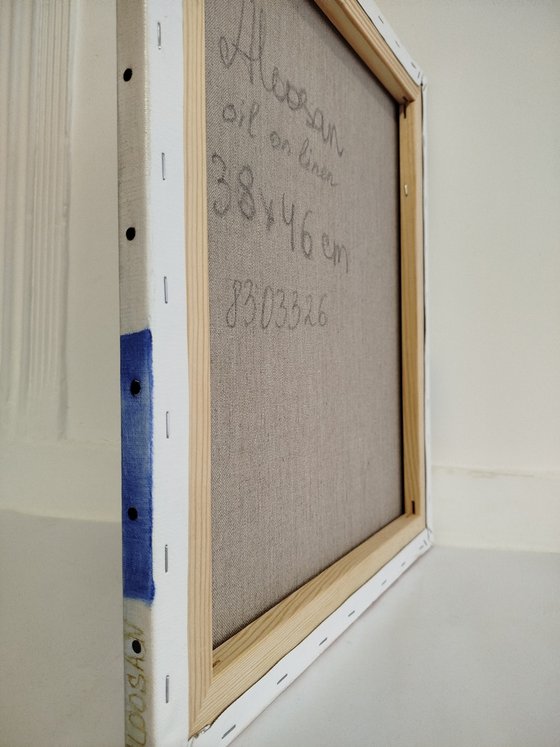 Aloosan
oil on linen
38 x 46 cm
8303326
ALOOSAN